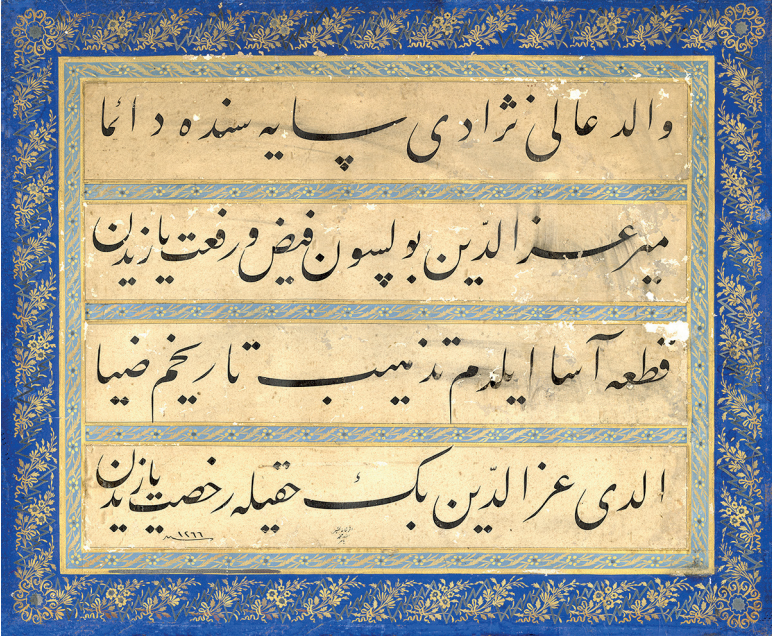 والد عالی نژادی سایه سنده دائما
میر عز الدّین بولسون فیض و رفعت یازیدن
قطعه آسا ایلدم تذهیب تاریخم ضیا
الدی عز الدّین بك حقیله رخصت یازیدن
سنه ١٢٦٦